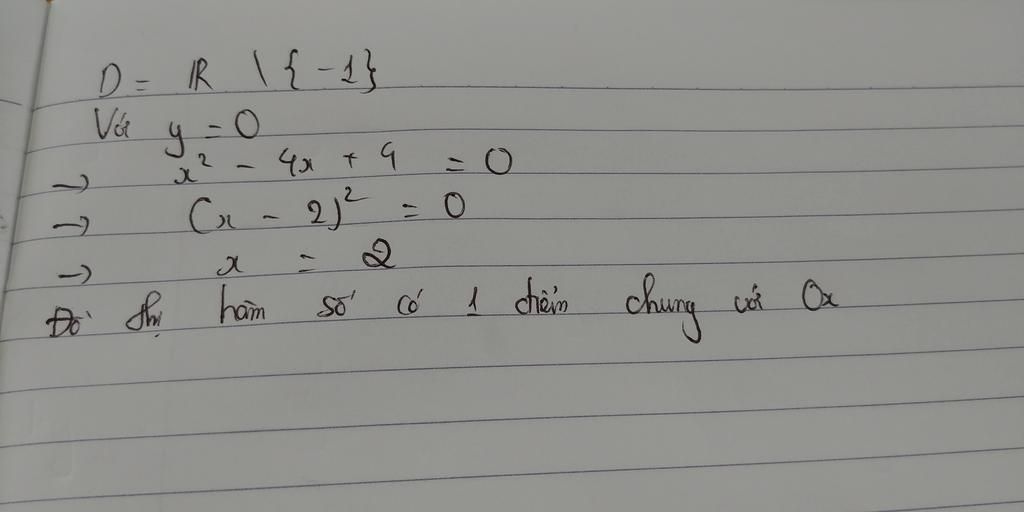 D = ℝ \ {-1}
Với y = 0
→ x² - 4x + 4 = 0
→ (x - 2)² = 0
→ x = 2
Đồ thị hàm số có 1 điểm chung với Ox